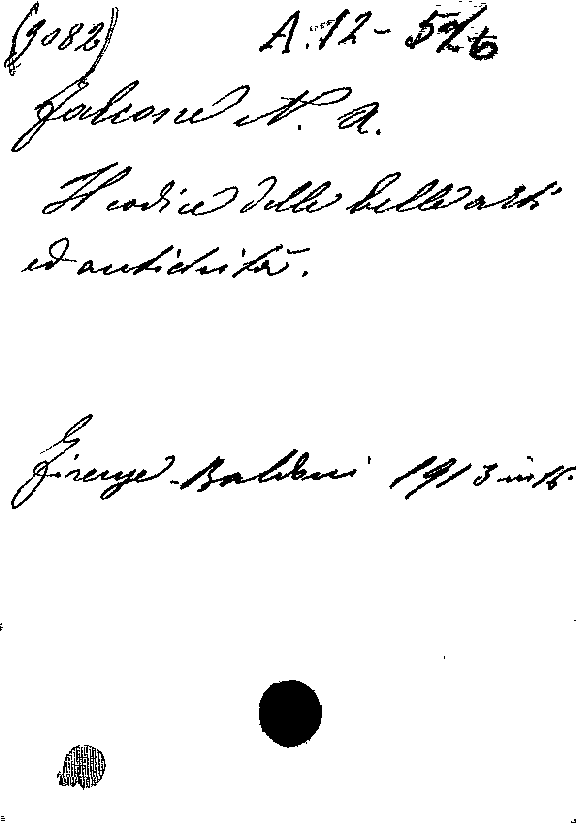 (9082) A.12-
Falcone N. A.
Il codice delle belle arti
ed antichità.
Firenze - Baldoni 1913 in 16.